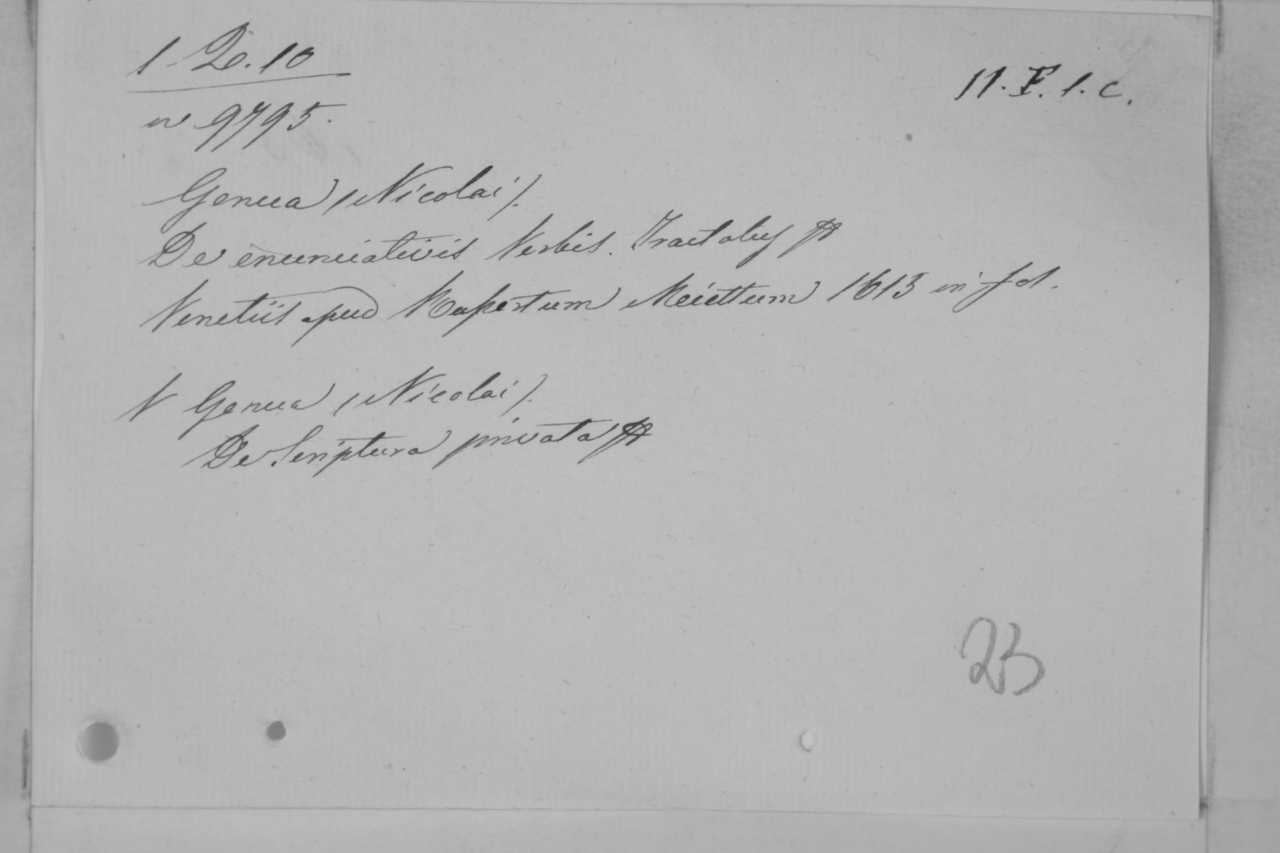 1. D. 10
11. F. 1. c.
n 9795.
Genua (Nicolai).
De enunciativis Verbis. Tractatus
Venetiis apud Rupertum Meiettum 1613 in fol.
V Genua (Nicolai).
De Scriptura privata
23